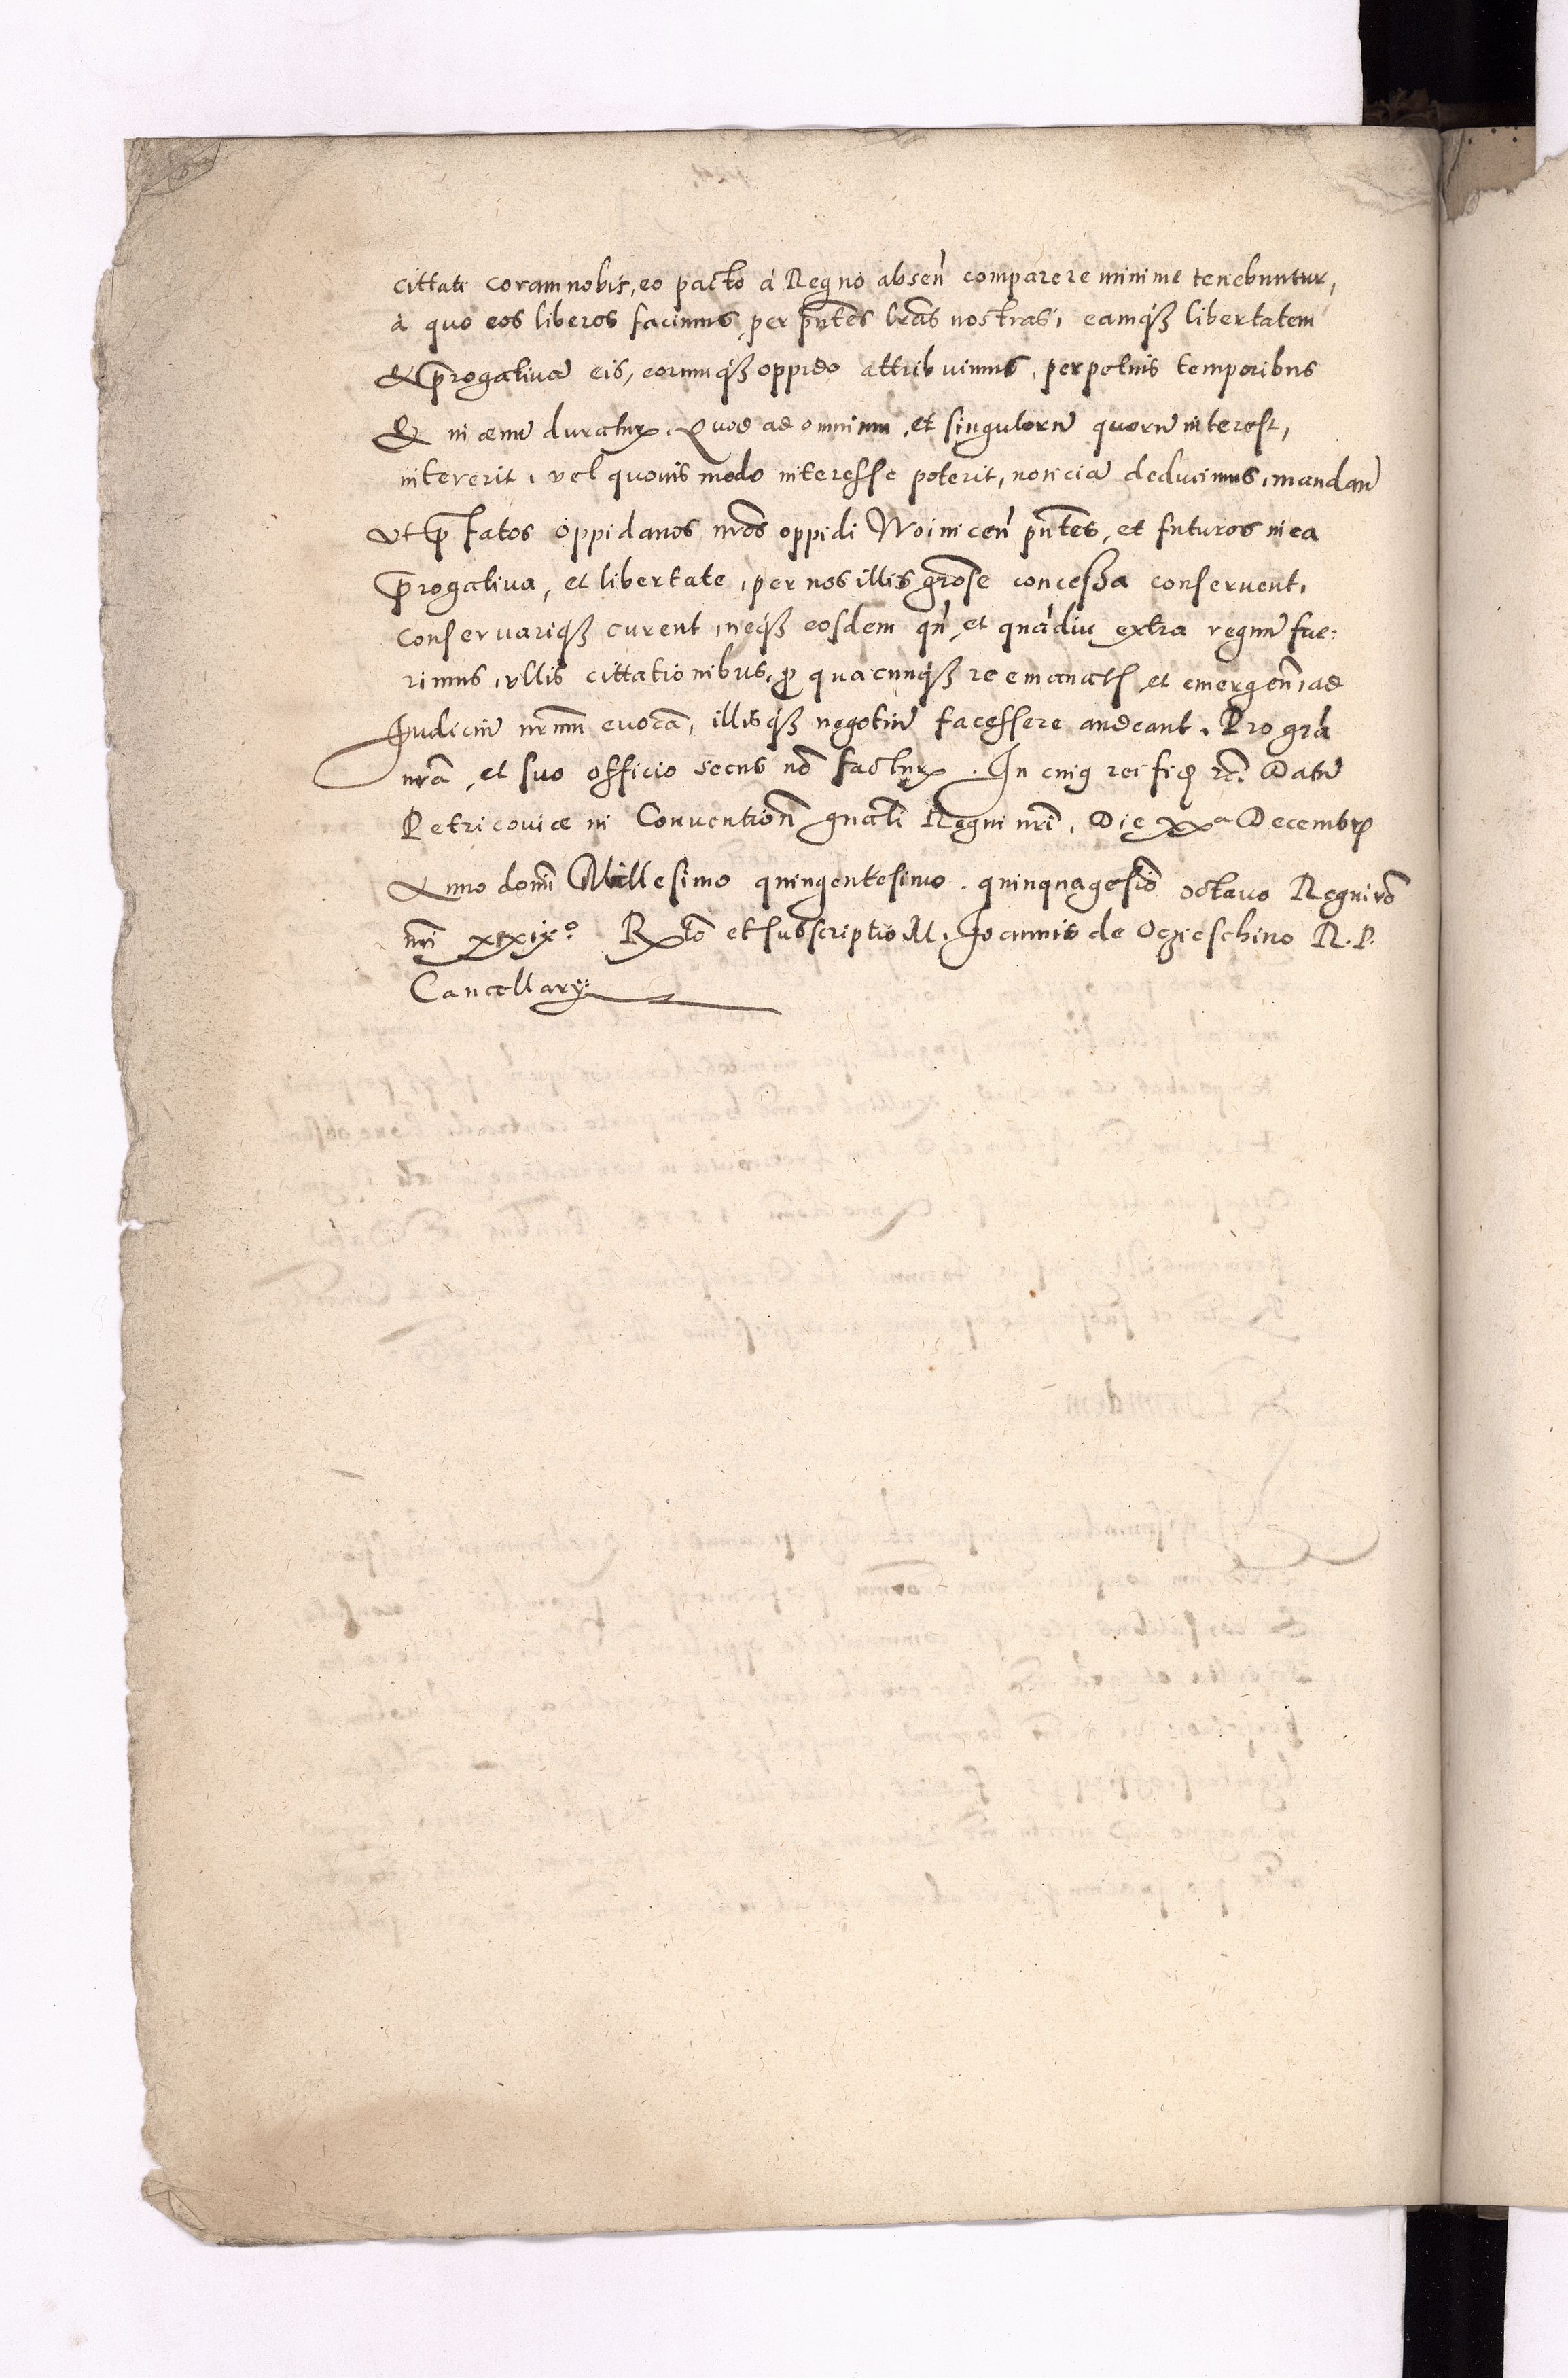 cittati coram nobis, eo pacto à Regno absen̄ comparere minime tenebuntur,
à quo eos liberos facimus, per pn̄tes lr̄as nostras, eamq́ꝫ libertatem
& p̄rogativā eis, eorumq́ꝫ oppido attribuimus, perpetuis temporibus
& in ævū duraturꝭ. Quod ad omnium, et singulorū quorū interest,
intererit, vel quovis modo interesse poterit, noticiā deducimus, mandan̄
ut p̄fatos oppidanos nr̄os oppidi Woinicen̄ pn̄tes, et futuros in ea
p̄rogativa, et libertate, per nos illis grōse concessa conservent,
conservariq́ꝫ curent, neq́ꝫ eosdem qn̄, et quādiu extra regnū fue:
rimus, ullis cittationibus, ꝓ quacunq́ꝫ re emanatꝭ, et emergen̄, ad
Judiciū nr̄um evocā, illisq́ꝫ negotiū facessere audeant. Pro grā
nrā, et suo officio secus nō facturꝭ. In cuiꝰ rei fidꝭ ꝛc̄. Datū
Petricoviæ in Conventionē gn̄ali Regni nr̄i, Die xxª Decembrꝭ
Anno domī Millesimo quingentesimo quinquagesīo octavo Regni vō
nr̄i xxixº. Rꝭtō et subscriptio M. Joannis de Oczieschino R. P.
Cancellarÿ: